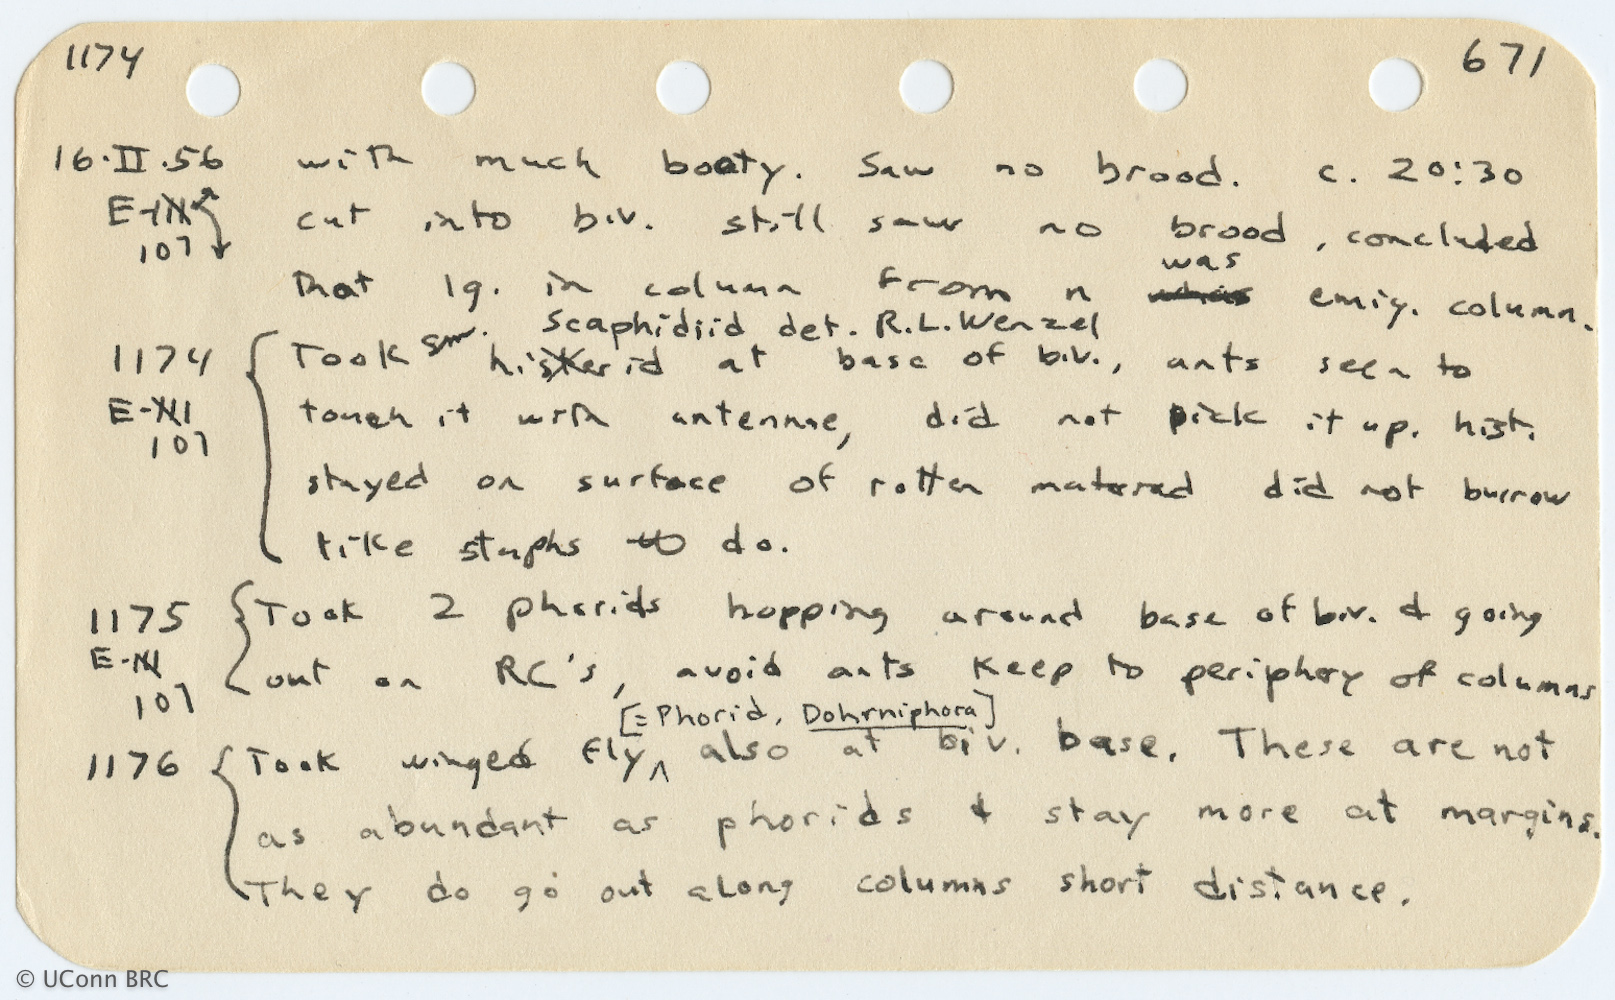 1174 671
16.II.56 with much booty. Saw no brood. c. 20:30
cut into biv. still saw no brood, concluded
107
was
that lg. in column from n emig. column.
Scaphidiid det. R.L.Wenzel
1174 Took sm. histerid at base of biv., ants seen to
touch it with antennae, did not pick it up. hist.
107
stayed on surface of rotten material did not burrow
like staphs do.
1175 Took 2 phorids hopping around base of biv. & going
out on RC's, avoid ants keep to periphery of columns
107
[=Phorid, Dohrniphora]
1176 Took winged fly ʌ also at biv. base. These are not
as abundant as phorids & stay more at margins.
They do go out along columns short distance.
© UConn BRC